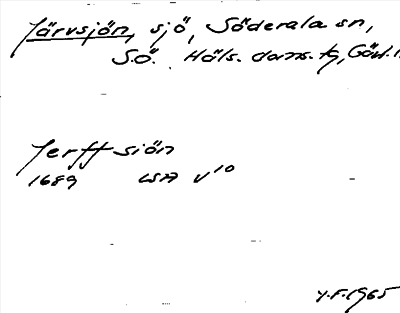 Järvsjön, sjö, Söderala sn,
S.Ö. Häls. doms. tg, Gävl. l.
Jerffsiön
1689 LSA V10
Y.F. 1965